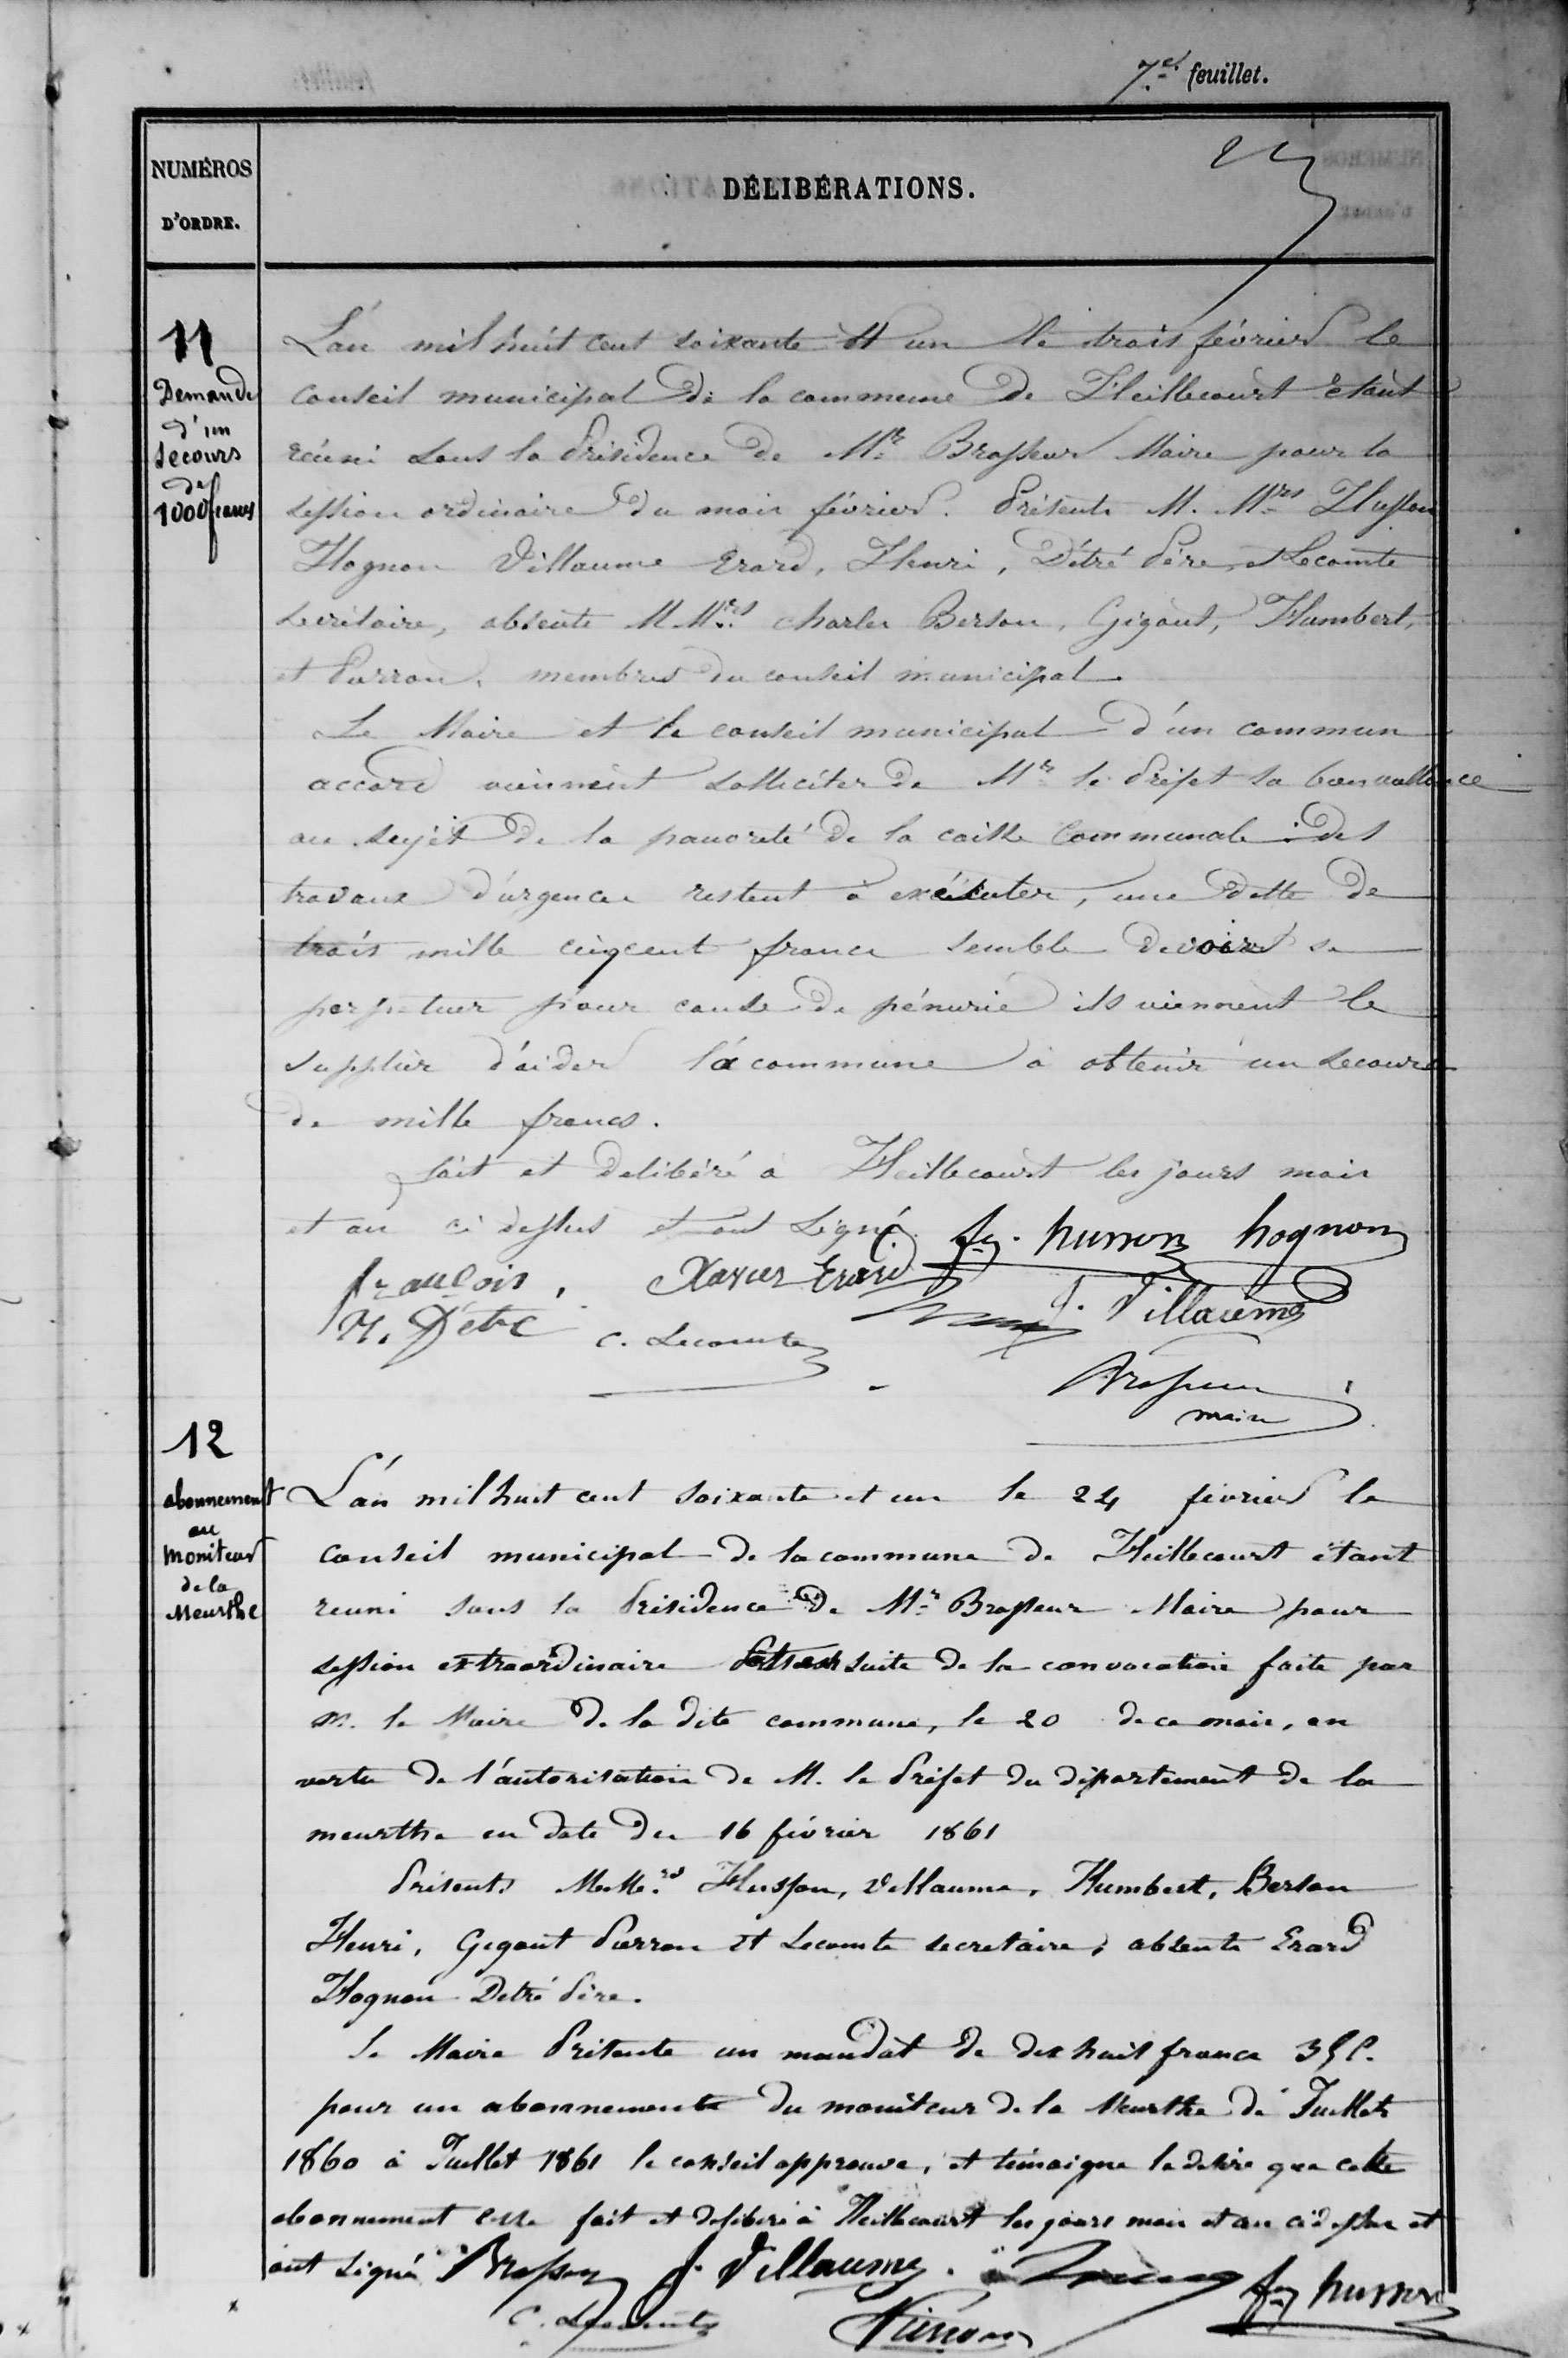 7e feuillet.
NUMÉROS
D'ORDRE.
DÉLIBÉRATIONS.
11
Demande
d'un
secours
de
1000 francs
L'an mil huit cent soixante et un le trois février le
conseil municipal de la commune de Heillecourt étant
réuni sous la Présidence de Mr. Brasseur Maire pour la
session ordinaire du mois février. Présents M. Mrs Husson
Hognon Villaume Erard, Henri, Détré Père, et Lecomte
secrétaire, absents M Mrs charles Berson, Gigant, Humbert,
et Pierron, membres du conseil municipal.
Le Maire et le conseil municipal d'un commun
accord viennent solliciter de Mr le Préfet sa bienveillance
au sujet de la pauvreté de la caisse Communale : des
travaux d'urgence restent à exécuter, une dette de
trois mille cinq cent francs semble devoir se
perpetuer pour cause de pénurie ils viennent le
supplier d'aider la commune à obtenir un secours
de mille francs.
fait et delibéré à Heillecourt les jours mois
et an ci dessus et ont signé. husson hognon
francois, Xavier Erard
N. Détré C. Lecomte J. Villaume
Brasseur
maire
12
abonnement
au
Moniteur
de la
Meurthe
L'an mil huit cent soixante et un le 24 février le
conseil municipal de la commune de Heillecourt étant
reuni sous la Présidence de Mr Brasseur Maire pour
session extraordinaire suite de la convocation faite par
M. le Maire de la dite commune, le 20 de ce mois, en
vertu de l'autorisation de M. le Préfet du département de la
meurthe en date du 16 février 1861
Présents M. Mrs Husson, Villaume, Humbert, Berson
Henri, Gegout Pierron et Lecomte secretaire, absents Erard
Hognon Detré Père.
le Maire Présente un mandat de dix huit francs 35 c.
pour un abonnement du moniteur de la Meurthe de Juillet
1860 à Juillet 1861 le conseil approuve, et témoigne le desire que cette
abonnement cesse fait et deliberé à Heillecourt les jours mois et an ci dessus et
ont signé Brasseur J. Villaume. husson
C. Lecomte Piéron